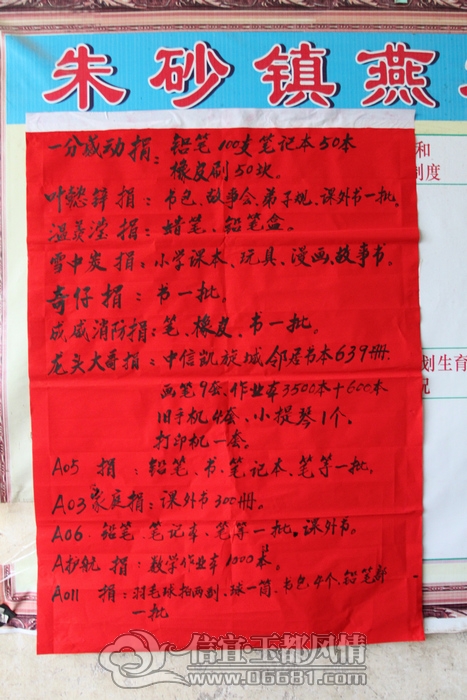 朱砂镇燕
和
制度
划生育
况
一分感动捐：铅笔100支笔记本50本
橡皮刷50块。
叶懿锌捐：书包、故事会、弟子规、课外书一批。
温美滢捐：蜡笔、铅笔盒。
雪中炭捐：小学课本、玩具、漫画、故事书。
奇仔捐：书一批。
成威消防捐：笔、橡皮、书一批。
龙头大哥捐：中信凯旋城邻居书本639册.
画笔9套、作业本3500本+600本
旧手机4套、小提琴1个。
打印机一套。
A05 捐：铅笔、书、笔记本、笔等一批、
A03家庭捐：课外书300册。
A06. 铅笔、笔记本、笔等一批。课外书。
A护航 捐：数学作业本1000本。
A011 捐：羽毛球拍两副、球一筒、书包4个、铅笔
一批
信宜·玉都风情
www.06681.com